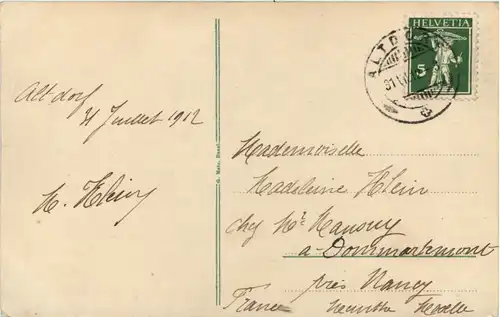 HELVETIA
5
ALTDORF
Altdorf
31 Juillet 1912
H. Klein
G. Metz, Basel.
Mademoiselle
Madeleine Klein
chez Mr Mansuy
a Dommartemont
près Nancy
France Meurthe Moselle